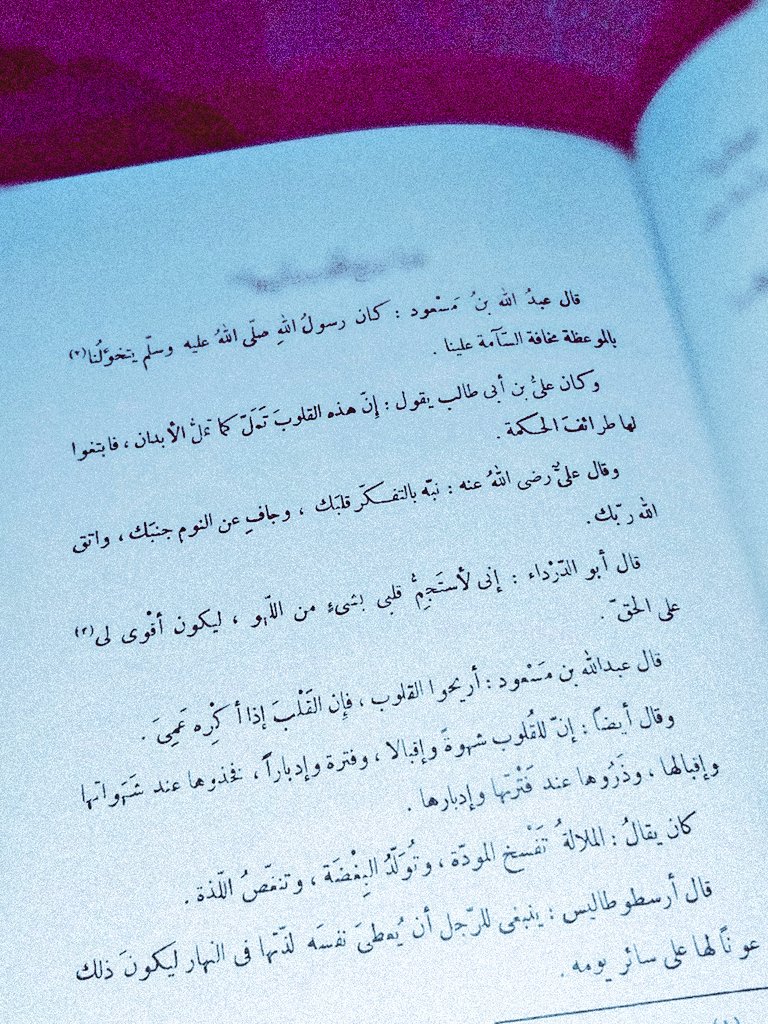 قال عبدُ الله بنُ مَسْعود : كان رسولُ اللهِ صلّى اللهُ عليه وسلّم يتخوّلُنا(٢)
بالموعظة مخافة السّآمة علينا .
وكان علىُّ بن أبى طالب يقول : إنّ هذه القلوبَ تَمَلّ كما تملُّ الأبدان ، فابتغوا
لها طرائفَ الحكمة .
وقال علىٌّ رضى اللهُ عنه : نبّه بالتفكّر قلبَك ، وجافِ عن النوم جنبَك ، واتق
الله ربّك .
قال أبو الدّرْداء : إنى لأستَجِمُّ قلبى بشىءٍ من اللّهو ، ليكون أقْوى لى(٣)
على الحقّ .
قال عبدالله بن مَسْعود : أريحوا القلوب ، فإن القَلْبَ إذا أكْرِه عَمِىَ .
وقال أيضاً : إنّ للقُلوب شهوةً وإقبالا ، وفترة وإدباراً ، فخذوها عند شَهَواتها
وإقبالها ، وذَرُوها عند فَتْرتها وإدبارها .
كان يقالُ : الملالةُ تَفْسخ المودّة ، وتُوَلّدُ البِغْضَة ، وتنغّصُ اللّذة .
قال أرسطوطاليس : ينبغى للرّجل أن يُعطىَ نفسَه لذّتها فى النهار ليكونَ ذلك
عونًا لها على سائر يومه .